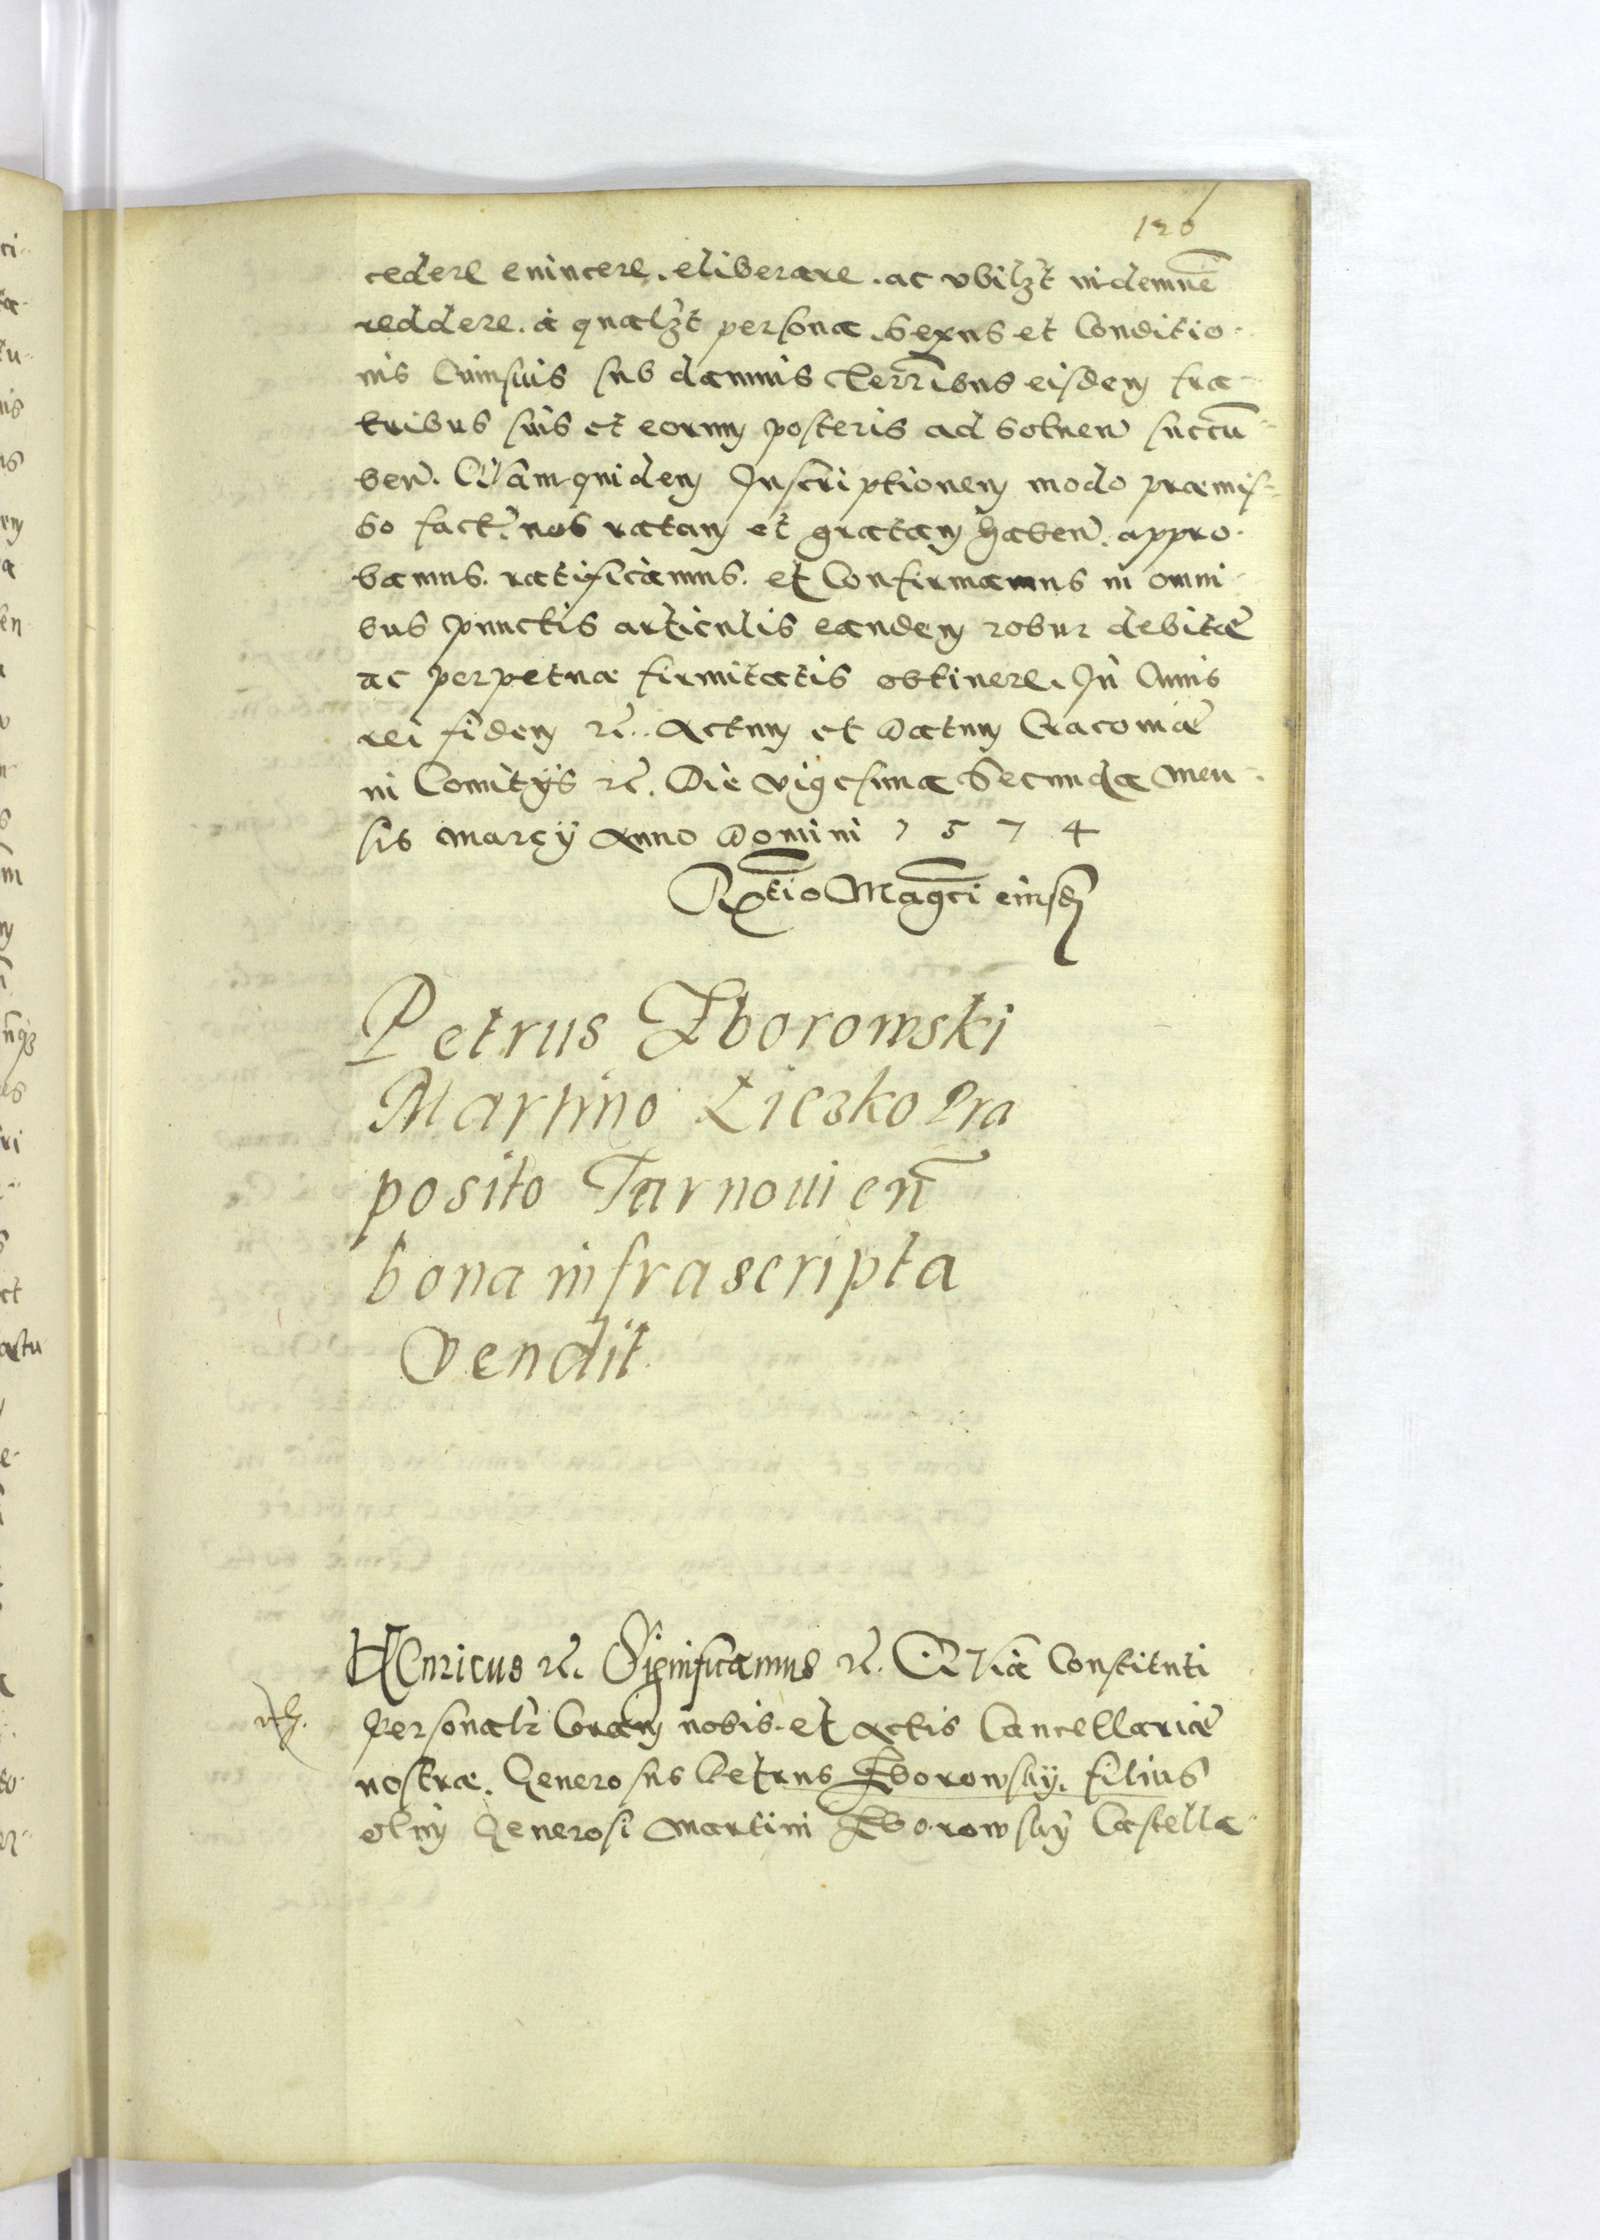 126
cedere evincere. eliberare. ac vbilzt indemnē
reddere. à qualzt persona. Sexus et Conditio-
nis Cuiusuis sub damnis Terrībus eisdem fra-
tribus suis et eorum posteris ad Soluen̄ succū-
ben̄. Quamquidem Inscriptionem modo præmis-
so fact̄. nos ratam et gratam haben̄. appro-
bamus. ratificamus. et Confirmamus in omni-
bus punctis articulis eandem robur debitæ
ac perpetuæ firmitatis obtinere. In Cuius
rei fidem etc. Actum et Datum Cracouiæ
in Comitÿs etc. Die vigesima Secunda Men-
sis Marcÿ Anno Domini 1574
Rtio Magci eiusdem
Petrus Zborowski
Martino Liczko Præ
posito Tarnouien̄
bona infrascripta
Vendit
HEnricus etc. Significamus etc. Quia Constituti
personalr Coram nobis. et Actis Cancellariæ
nostræ. Generosus Petrus Zborowsky. filius
olim Generosi Martini Zborowskÿ Castella-